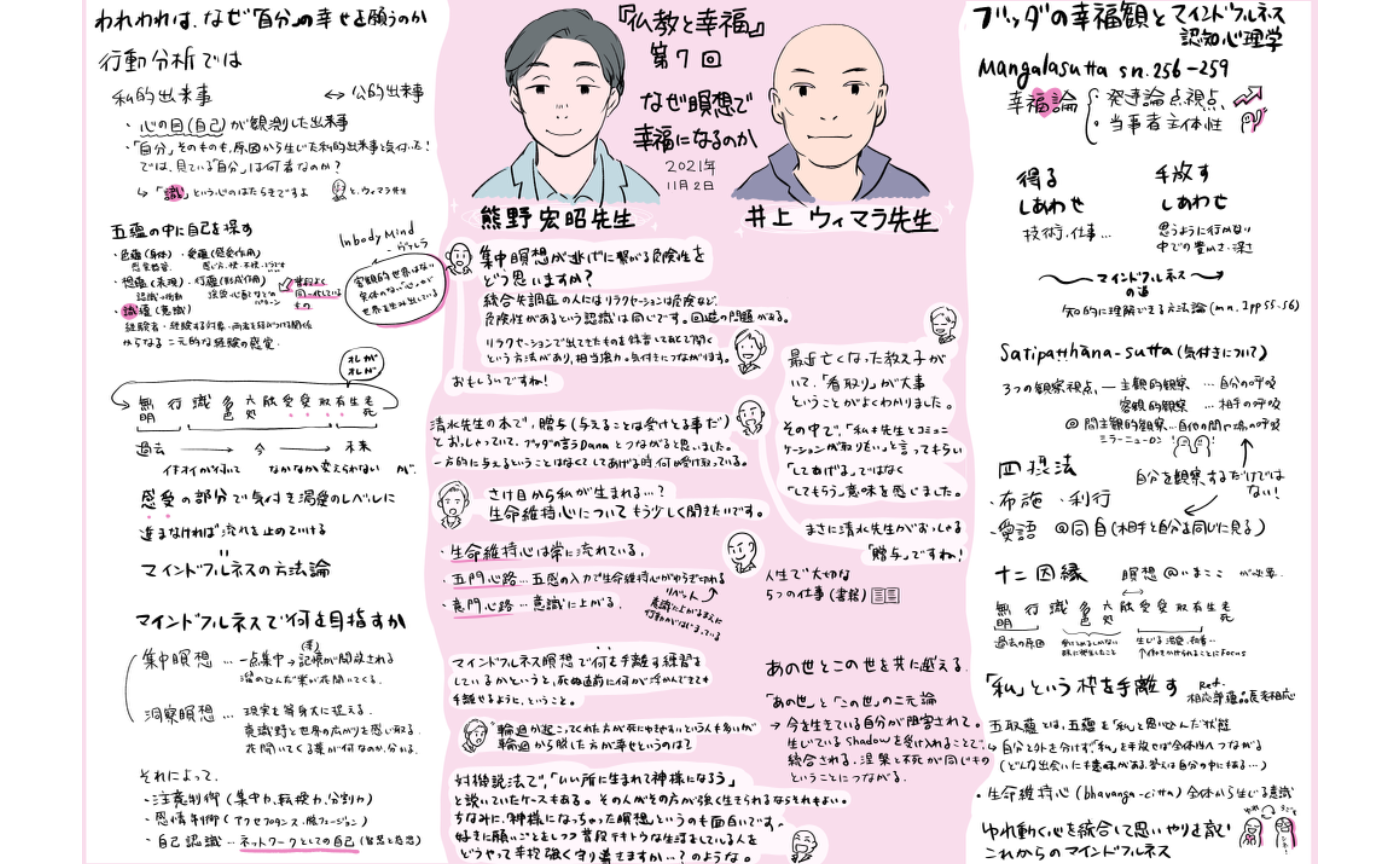 われわれは、なぜ「自分」の幸せを願うのか
行動分析では
私的出来事 ⇔ 公的出来事
・心の目(自己)が観測した出来事
・「自分」そのものも、原因から生じた私的出来事と気付いる!
では、見ている「自分」は何者なのか?
↳「識」という心のはたらきですよ と、ウィマラ先生
五蘊の中に自己を探す
・色蘊(身体)・受蘊(感受作用)
感覚器官
・想蘊(表現)・行蘊(形成作用)
・識蘊(意識)
普段よく
同一化している
もの
経験者・経験する対象・両者を結びつける関係
からなる二元的な経験の感覚.
Inbody Mind
ヴァレラ
客観的世界はない
実体のない心が
世界を生み出している
オレが
オレが
無明 行 識 名色 六処 触 受 愛 取 有 生 老死
過去 → 今 → 未来
イキオイが付いて なかなか変えられない が、
感受の部分で気付き渇愛のレベルに
進まなければ流れを止めていける
マインドフルネスの方法論
マインドフルネスで何を目指すか
集中瞑想 … 一点集中→記憶が開放される
溜め込んだ業が花開いてくる.
洞察瞑想 … 現実を等身大に捉える.
意識野と世界の広がりを感じ取る.
花開いてくる業が何なのか、分かる.
それによって.
・注意制御(集中力、転換力、分割力)
・感情制御(アクセプタンス・脱フュージョン)
・自己認識 … ネットワークとしての自己
『仏教と幸福』
第7回
なぜ瞑想で
幸福になるのか
2021年
11月2日
熊野 宏昭先生
井上 ウィマラ先生
集中瞑想が逃げに繋がる危険性を
どう思いますか?
統合失調症の人にはリラクセーションは危険など、
危険性があるという認識は同じです。回避の問題がある。
リラクセーションで出てきたものを録音してあとで聞く
という方法があり、相当強力。気付きにつながります。
おもしろいですね!
清水先生の本で、贈与(与えることは受けとる事だ)
とおっしゃっていて、ブッダの言うDanaとつながると思いました。
一方的に与えるということはなくてしてあげる時、何か受け取っている。
最近亡くなった教え子が
いて、「看取り」が大事
ということがよくわかりました。
その中で、「私は先生とコミュニ
ケーションが取りたい。」と言ってもらい
「してあげる」ではなく
「してもらう」意味を感じました。
まさに清水先生がおっしゃる
「贈与」ですね!
さけ目から私が生まれる…?
生命維持心についてもう少しく聞きたいです。
・生命維持心は常に流れている.
・五門心路…五感の入力で生命維持心がゆらぎ切れる
・意門心路…意識に上がる.
リベット
意識に上がるまえに
行動がはじまっている
人生で大切な
5つの仕事(書籍)
マインドフルネス瞑想で何を手離す練習を
しているかというと、死ぬ直前に何が浮かんできても
手離せるように、ということ。
輪廻が起こってくれた方が死にやすいという人も多いが
輪廻から脱した方が幸せというのは?
対機説法で、「いい所に生まれて神様になろう」
と説いていたケースもある。その人がその方が強く生きられるならそれもよい。
ちなみに、神様になっちゃった瞑想というのも面白いです。
好きに願いごとをしつつ普段テキトウな生活をしている人を
どうやって辛抱強く守り導きますか…?のような。
あの世とこの世を共に越える.
「あの世」と「この世」の二元論
→今を生きている自分が阻害されて。
生じているShadowを受け入れることで、
統合される。涅槃と不死が同じもの
ということにつながる.
ブッダの幸福観とマインドフルネス
認知心理学
Mangalasutta sn.256-259
幸福論
・発達論点視点、
・当事者主体性
得る
しあわせ
技術、仕事…
手放す
しあわせ
思うように行かない
中での豊かさ・深さ
マインドフルネス
の道
知的に理解できる方法論(mn. Ipp55.56)
Satipaṭṭhāna-sutta(気付きについて)
3つの観察視点、― 主観的観察 … 自分の呼吸
客観的観察 … 相手の呼吸
@間主観的観察…自他の間や場の呼吸
ミラーニューロン!
四摂法
・布施 ・利行
・愛語 @同自(相手と自分を同じに見る)
自分を観察するだけでは
ない!
十二因縁 瞑想@いまここ が必要.
無明 行 識 名色 六処 触 受 愛 取 有 生 老死
過去の原因
生じる渇愛、執着…
「私」という枠を手離す
Ref.
五取蘊とは、五蘊を「私」と思い込んだ状態
↳自分と外を分けず、「私」を手放せば全体性へつながる
(どんな出会いにも意味がある.答えは自分の中にある…)
・生命維持心(bhavanga-citta)全体から生じる意識
ゆれ動く心を統合して思いやりを育む
これからのマインドフルネス